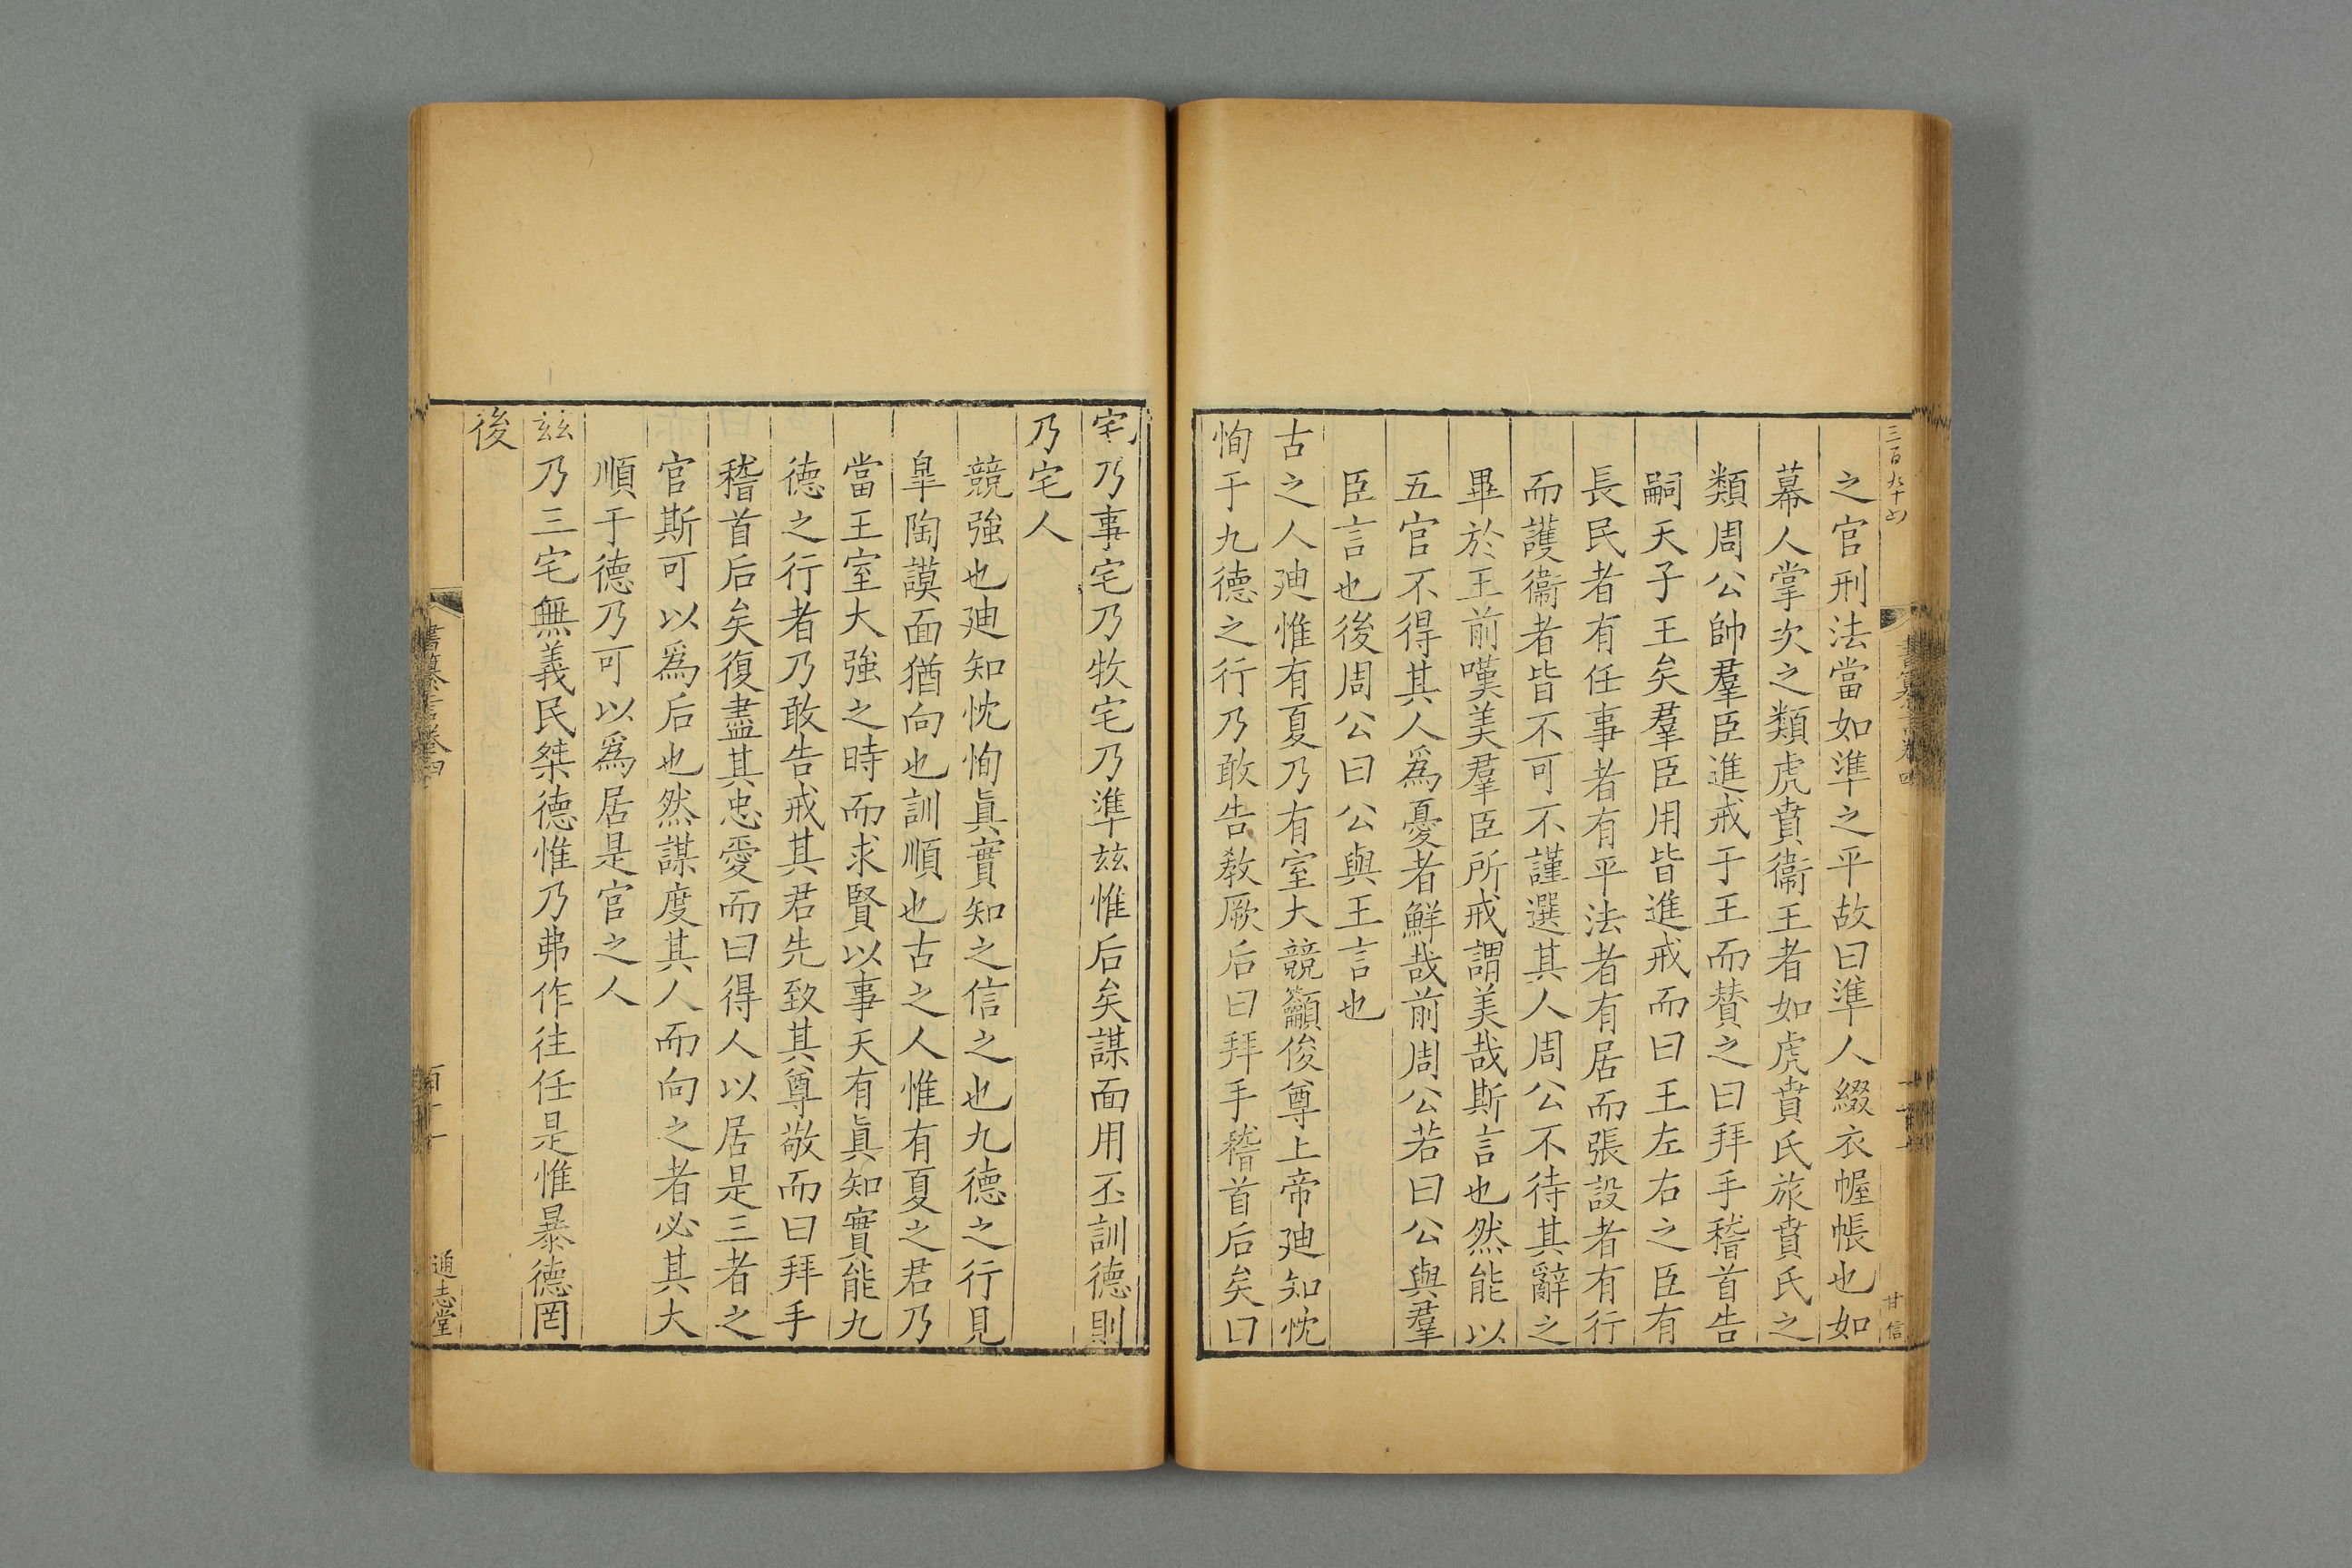 三百九十四
甘信
之官刑法當如準之平故曰準人綴衣幄帳也如
幕人掌次之類虎賁衞王者如虎賁氏旅賁氏之
類周公帥羣臣進戒于王而賛之曰拜手稽首告
嗣天子王矣羣臣用皆進戒而曰王左右之臣有
長民者有任事者有平法者有居而張設者有行
而護衞者皆不可不謹選其人周公不待其辭之
畢於王前嘆美羣臣所戒謂美哉斯言也然能以
五官不得其人爲憂者鮮哉前周公若曰公與羣
臣言也後周公曰公與王言也
古之人廸惟有夏乃有室大競籲俊尊上帝廸知忱
恂于九德之行乃敢告敎厥后曰拜手稽首后矣曰
宅乃事宅乃牧宅乃準兹惟后矣謀面用丕訓德則
乃宅人
競強也廸知忱恂眞實知之信之也九德之行見
臯陶謨面猶向也訓順也古之人惟有夏之君乃
當王室大強之時而求賢以事天有眞知實能九
德之行者乃敢告戒其君先致其尊敬而曰拜手
稽首后矣復盡其忠愛而曰得人以居是三者之
官斯可以爲后也然謀度其人而向之者必其大
順于德乃可以爲居是官之人
兹乃三宅無義民桀德惟乃弗作往任是惟暴德罔
後
書纂言卷四
通志堂